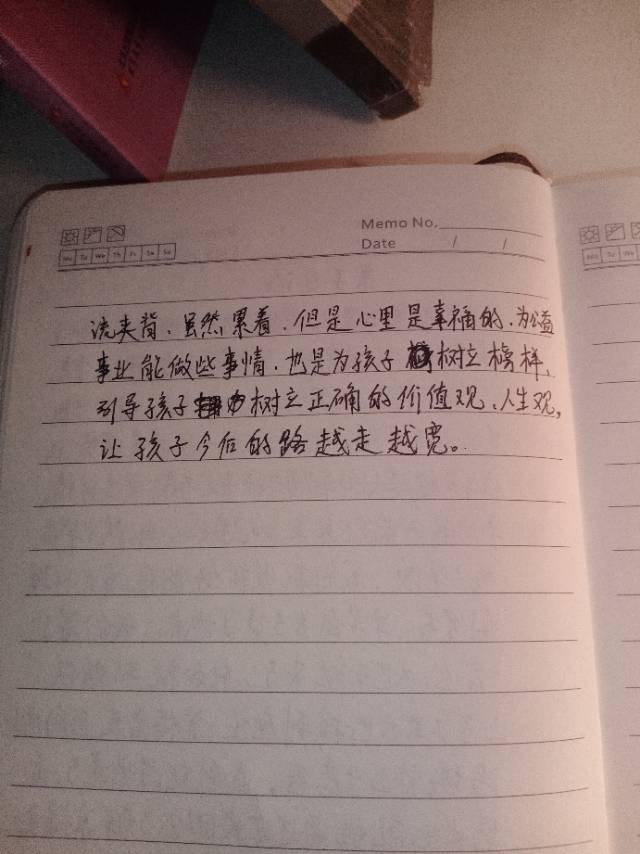 Memo No.
Date / /
Mo Tu We Th Fr Sa Su
流夹背、虽然累着、但是心里是幸福的、为公益
事业能做些事情、也是为孩子树立榜样、
引导孩子树立正确的价值观、人生观,
让孩子今后的路越走越宽。